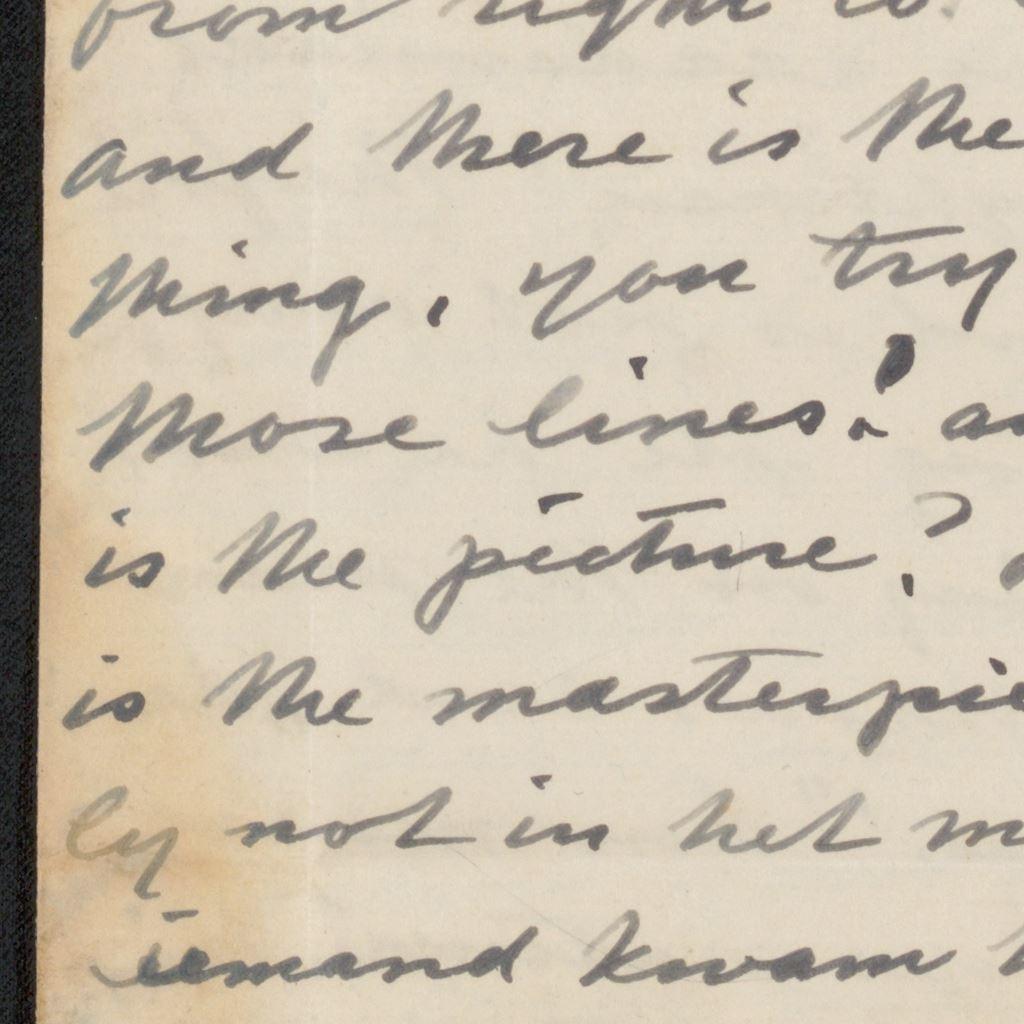 from right to
and there is the
thing, you try
more lines!
is the picture?
is the masterpie
ly not in het m
iemand kwam